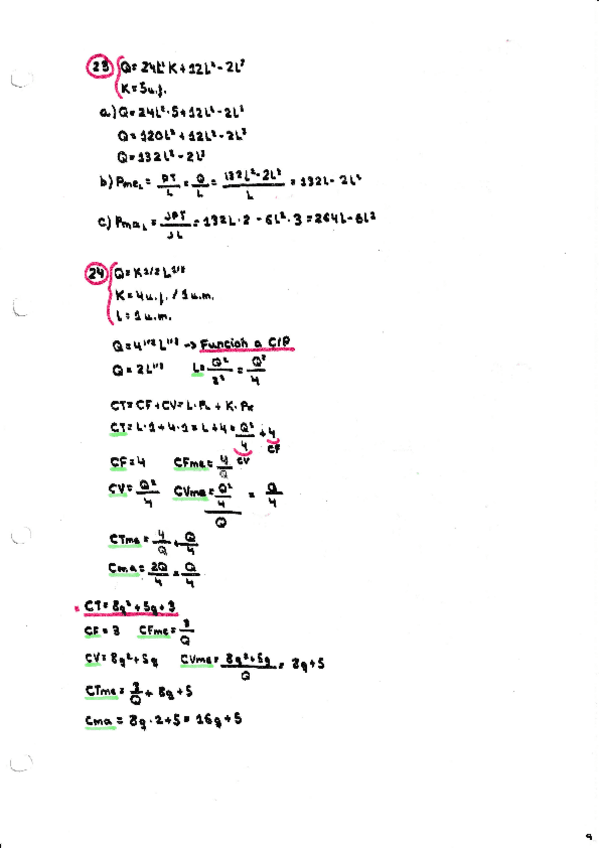 23 Q= 24L² K + 12L² - 2L³
K= 5u.f.
a) Q= 24L²·5+12L²-2L³
Q= 120L²+12L²-2L³
Q= 132L²-2L³
b) PmeL = PT/L = Q/L = 132L²-2L³/L = 132L-2L²
c) PmaL = ∂PT/∂L = 132L·2 - 6L²·3 = 264L-6L²
24 Q= K^1/2 L^1/2
K= 4u.f. / 1u.m.
L= 1u.m.
Q= 4^1/2 L^1/2 -> Función a C/P
Q= 2L^1/2 L= Q²/2² = Q²/4
CT= CF+CV= L·PL + K·PK
CT= L·1+4·1= L+4= Q²/4 + 4
CV CF
CF= 4 CFme= 4/Q
CV= Q²/4 CVme= Q²/4/Q = Q/4
CTme= 4/Q + Q/4
Cma= 2Q/4 = Q/4
CT= 8q²+5q+3
CF= 3 CFme= 3/Q
CV= 8q²+5q CVme= 8q²+5q/Q = 8q+5
CTme= 3/Q + 8q+5
Cma= 8q·2+5= 16q+5
9